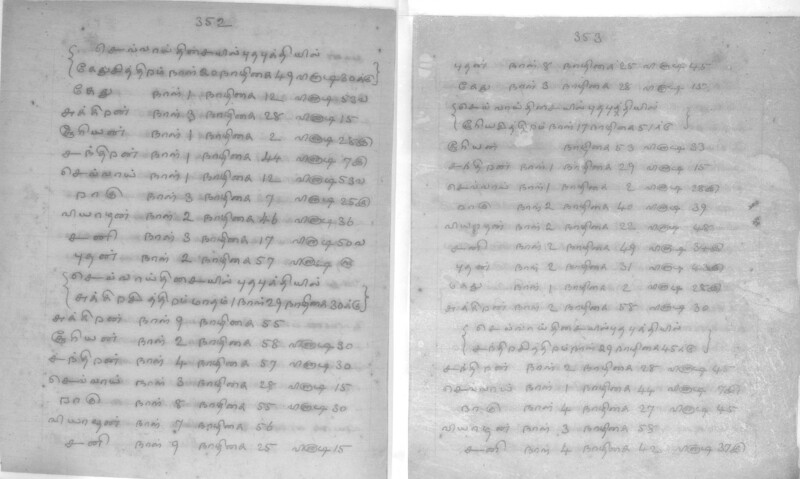 352
செவ்வாய் திசையில் புதபுத்தியில்
கேதுசித்திரம் நாள் 20 நாழிகை 49 விநாடி 30க்கு
கேது நாள் 1 நாழிகை 12 விநாடி 53
சுக்கிரன் நாள் 3 நாழிகை 28 விநாடி 15
சூரியன் நாள் 1 நாழிகை 2 விநாடி 28
சந்திரன் நாள் 1 நாழிகை 44 விநாடி 7
செவ்வாய் நாள் 1 நாழிகை 12 விநாடி 53
ராகு நாள் 3 நாழிகை 7 விநாடி 25
வியாழன் நாள் 2 நாழிகை 46 விநாடி 36
சனி நாள் 3 நாழிகை 17 விநாடி 50
புதன் நாள் 2 நாழிகை 57 விநாடி
செவ்வாய் திசையில் புதபுத்தியில்
சுக்கிரசித்திரம் மாதம் 1 நாள் 29 நாழிகை 30க்கு
சுக்கிரன் நாள் 9 நாழிகை 55
சூரியன் நாள் 2 நாழிகை 58 விநாடி 30
சந்திரன் நாள் 4 நாழிகை 57 விநாடி 30
செவ்வாய் நாள் 3 நாழிகை 28 விநாடி 15
ராகு நாள் 8 நாழிகை 55 விநாடி 30
வியாழன் நாள் 7 நாழிகை 56
சனி நாள் 9 நாழிகை 25 விநாடி 15
353
புதன் நாள் 8 நாழிகை 25 விநாடி 45
கேது நாள் 3 நாழிகை 28 விநாடி 15
செவ்வாய் திசையில் புதபுத்தியில்
சூரியசித்திரம் நாள் 17 நாழிகை 51க்கு
சூரியன் நாழிகை 53 விநாடி 33
சந்திரன் நாள் 1 நாழிகை 29 விநாடி 15
செவ்வாய் நாள் 1 நாழிகை 2 விநாடி 28
ராகு நாள் 2 நாழிகை 40 விநாடி 39
வியாழன் நாள் 2 நாழிகை 22 விநாடி 48
சனி நாள் 2 நாழிகை 49 விநாடி 34
புதன் நாள் 2 நாழிகை 31 விநாடி 43
கேது நாள் 1 நாழிகை 2 விநாடி 28
சுக்கிரன் நாள் 2 நாழிகை 58 விநாடி 30
செவ்வாய் திசையில் புதபுத்தியில்
சந்திரசித்திரம் நாள் 29 நாழிகை 45க்கு
சந்திரன் நாள் 2 நாழிகை 28 விநாடி 45
செவ்வாய் நாள் 1 நாழிகை 44 விநாடி 7
ராகு நாள் 4 நாழிகை 27 விநாடி 45
வியாழன் நாள் 3 நாழிகை 58
சனி நாள் 4 நாழிகை 42 விநாடி 37